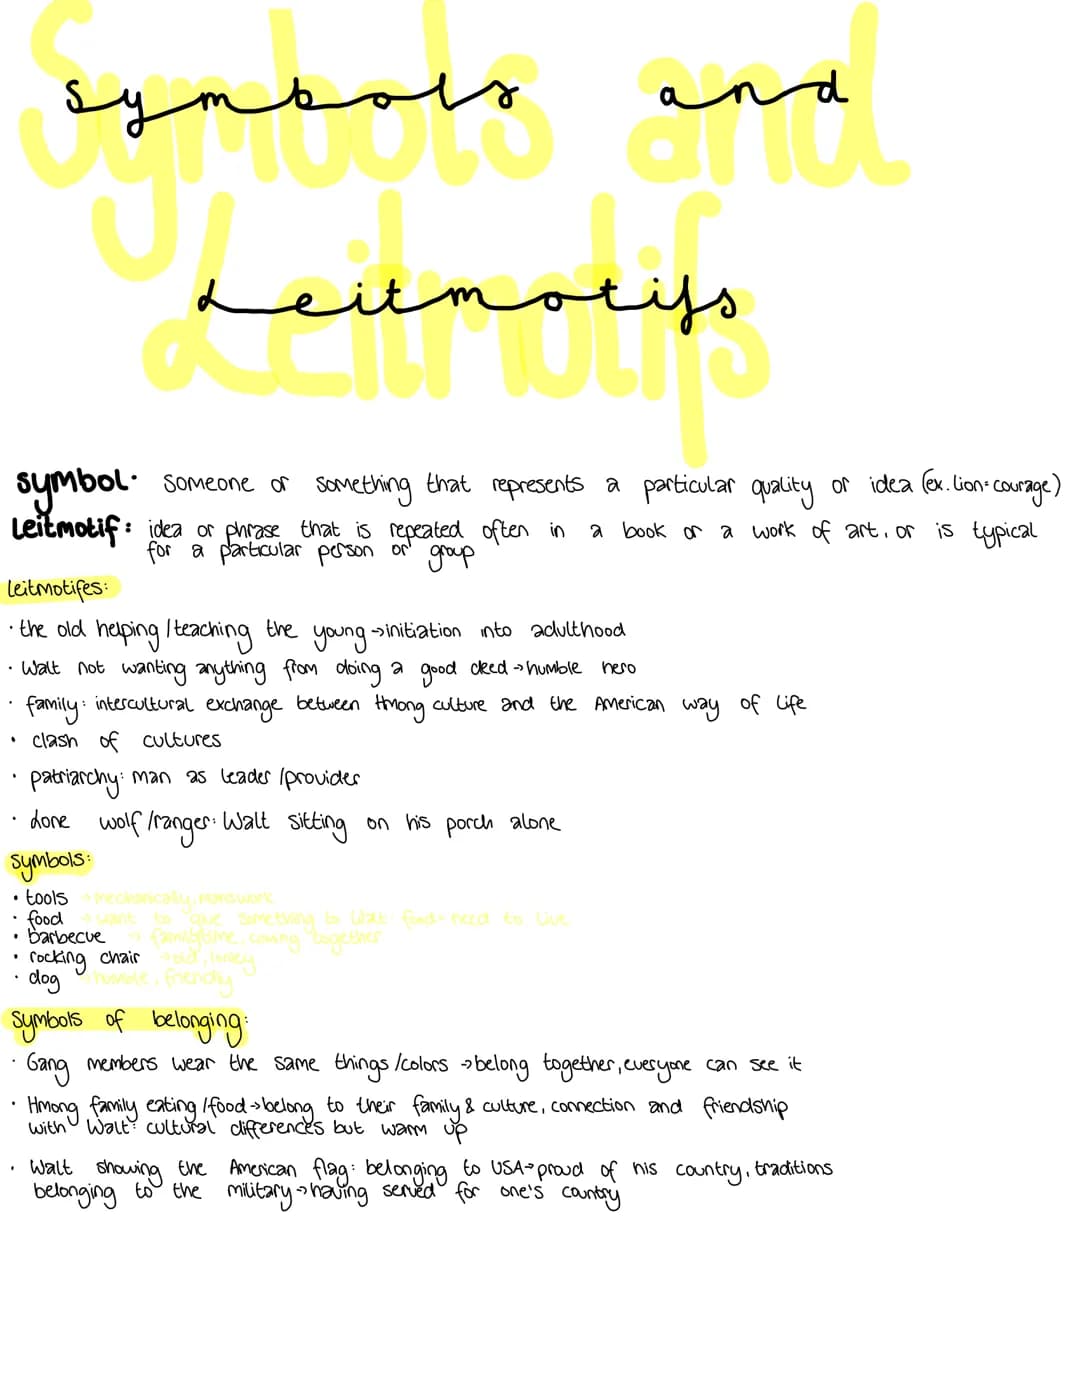 Symbols and
Leitmotifs
symbol: someone or something that represents a particular quality or idea (ex. lion= courage)
Leitmotif: idea or phrase that is repeated often in a book or a work of art, or is typical
for a particular person or group
Leitmotifes:
· the old helping / teaching the young → initiation into adulthood
· Walt not wanting anything from doing a good deed → humble hero
· family: intercultural exchange between Hmong culture and the American way of life
· clash of cultures
· patriarchy: man as leader / provider
· Lone wolf / ranger: Walt sitting on his porch alone
Symbols:
· tools → mechanically, manswork
· food → want to give something to Walt food= need to live
· barbecue → familytime, coming together
· rocking chair → old, lonely
· dog → humble, friendly
Symbols of belonging:
· Gang members wear the same things / colors → belong together, everyone can see it
· Hmong family eating / food → belong to their family & culture, connection and friendship
with Walt: cultural differences but warm up
· Walt showing the American flag: belonging to USA → proud of his country, traditions
belonging to the military → having served for one's country